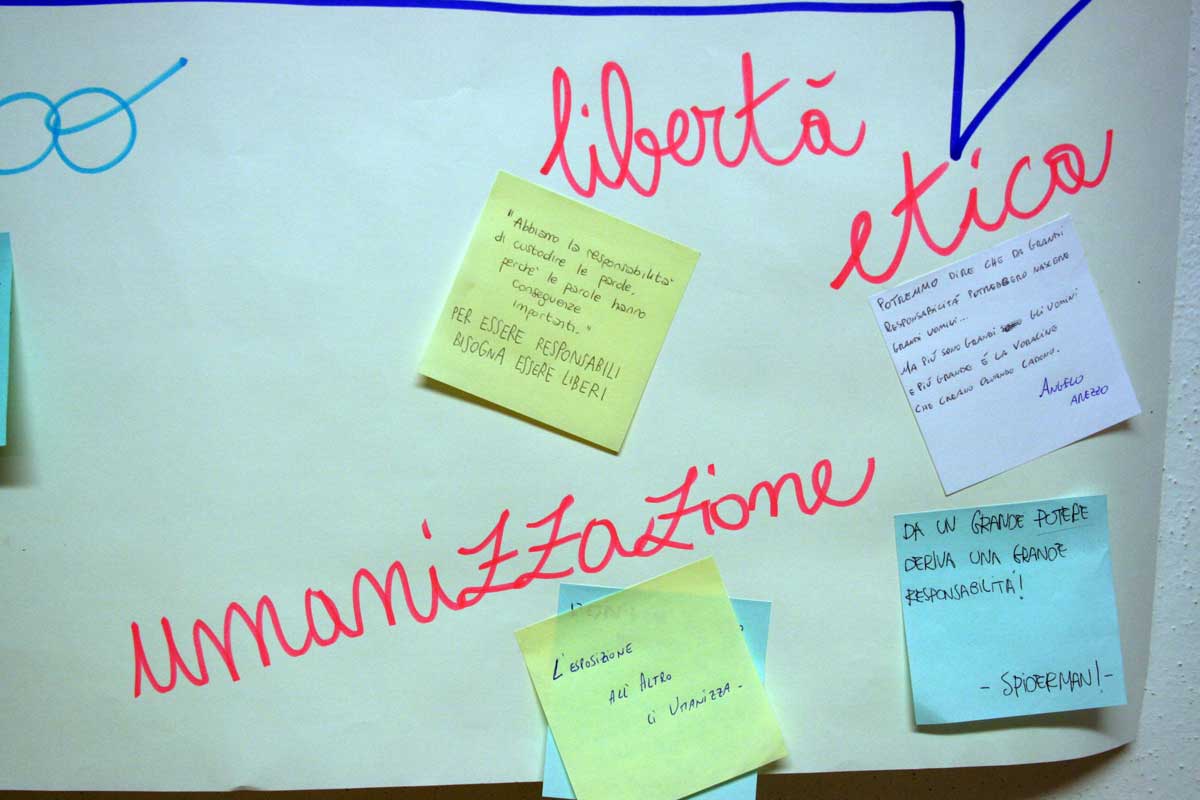 libertà
etica
"Abbiamo la responsabilità
di custodire le parole,
perchè le parole hanno
conseguenze
importanti."
PER ESSERE RESPONSABILI
BISOGNA ESSERE LIBERI
POTREMMO DIRE CHE DA GRANDI
RESPONSABILITÀ POTREBBERO NASCERE
GRANDI UOMINI...
MA PIÙ SONO GRANDI GLI UOMINI
E PIÙ GRANDE È LA VORAGINE
CHE CREANO QUANDO CADONO.
ANGELO
AREZZO
umanizzazione
DA UN GRANDE POTERE
DERIVA UNA GRANDE
RESPONSABILITÀ!
- SPIDERMAN! -
L'ESPOSIZIONE
ALL'ALTRO
CI UMANIZZA -